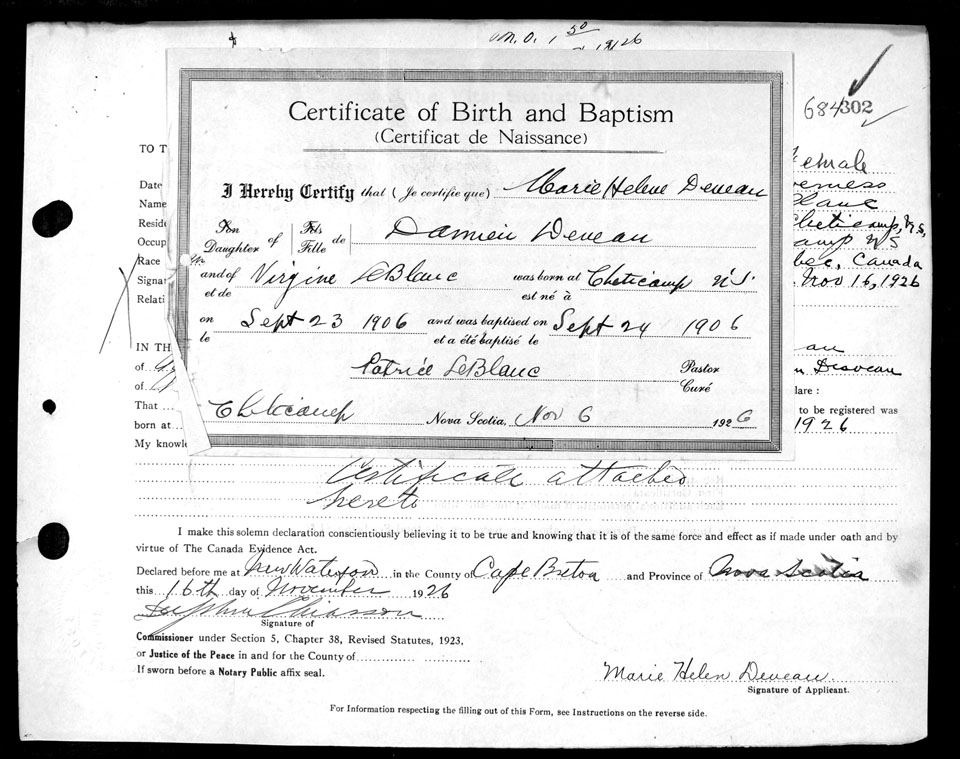 1926
684302
Certificate of Birth and Baptism
(Certificat de Naissance)
TO T
Female
I Hereby Certify that (Je certifie que) Marie Helene Deveau
Date
Name
Son Fils
Daughter of Fille de Damien Deveau
Cheticamp, N.S.
Reside
Occup
amp N S
Race
bec, Canada
and of Virgine LeBlanc was born at Cheticamp N.S.
et de est né à
Signat
Nov 16, 1926
Relati
on Sept 23 1906 and was baptised on Sept 24 1906
le et a été baptisé le
IN TH
au
of
Patrice LeBlanc Pastor
Curé
Deveau
of
lare :
That
Cheticamp Nova Scotia, Nov 6 1926
to be registered was
born at
1926
My knowle
Certificate attached
hereto
I make this solemn declaration conscientiously believing it to be true and knowing that it is of the same force and effect as if made under oath and by
virtue of The Canada Evidence Act.
Declared before me at New Waterford in the County of Cape Breton and Province of Nova Scotia
this 16th day of November 1926
Chiasson
Signature of
Commissioner under Section 5, Chapter 38, Revised Statutes, 1923,
or Justice of the Peace in and for the County of
If sworn before a Notary Public affix seal.
Marie Helen Deveau.
Signature of Applicant.
For Information respecting the filling out of this Form, see Instructions on the reverse side.